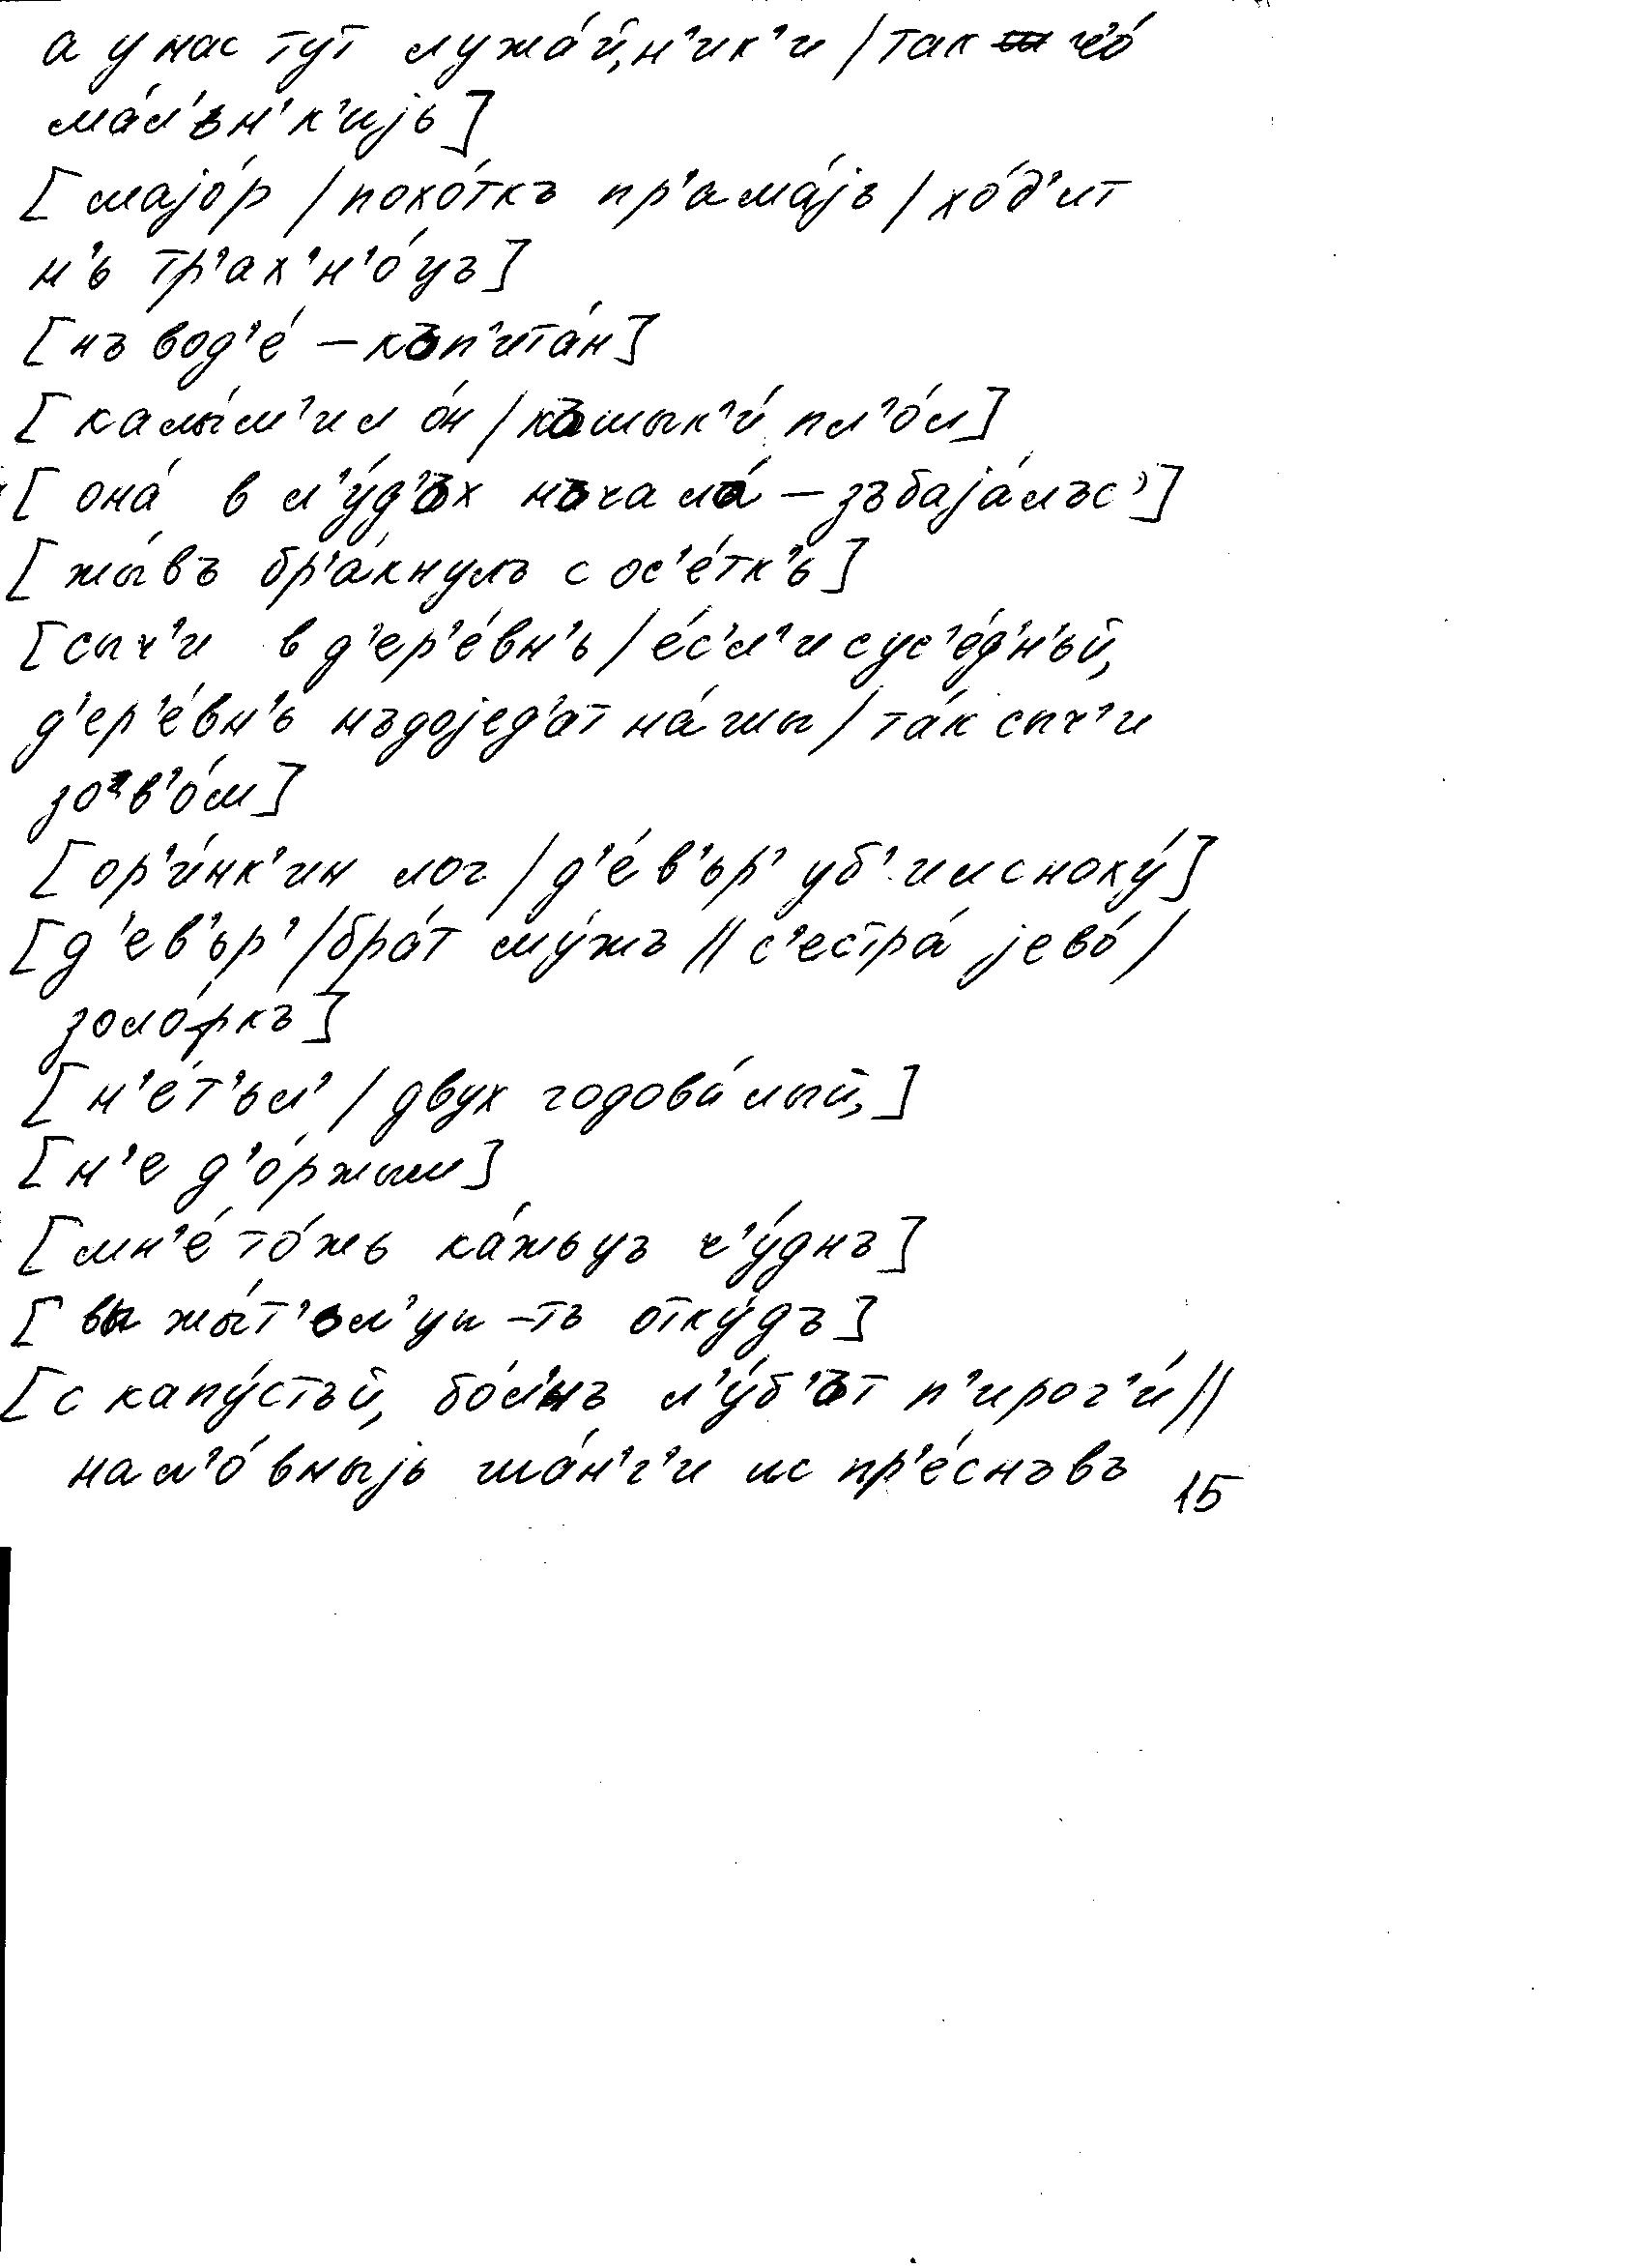 а у нас тут лужа́й,н'ик'и / так ч'о́
ма́л'ьн'к'иjь]
[маjо́р / похо́ткъ пр'ама́jъ / хо́д'ит
н'ь тр'ах'н'о́цъ]
[нъ вод'е́ – къп'ита́н]
[калы́м'ил о́н / къшык'и́ пл'о́л]
[она́ в л'у́д'ьх начала́ – зъбаjа́лъс']
[жы́въ бр'а́кнулъ с ос'е́тк'ь]
[сыч'и в д'ер'е́вн'ь / е́с'л'и сус'е́д'н'ьй,
д'ер'е́вн'ь нъдоjед'ат на́шы / та́к сыч'и
зов'о́м]
[ор'и́нк'ин лог / д'е́в'ьр' уб'ил сноху́]
[д'ев'ьр' / бра́т му́жъ // с'естра́ jево́ /
золо́ркъ]
[н'е́т'ьл' / двух годова́лый,]
[н'е д'о́ржым]
[мн'е́ то́жь ка́жьцъ ч'у́днъ]
[вы жы́т'ел'ци –ть отку́дъ]
[с капу́стъй, бо́л'нъ л'у́б'ьт п'ирог'и́ //
нал'о́вныjь ша́н'г'и ис пр'е́снъвъ
15